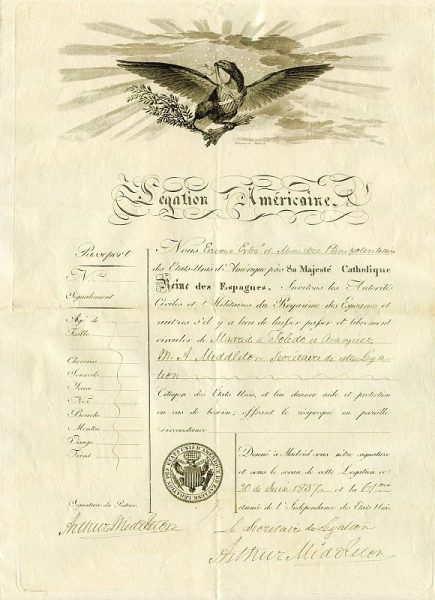 Legation Américaine.
Passeport
N.º
Signalement
Age de
Taille
Cheveux
Sourcils
Yeux
Nez
Bouche
Menton
Visage
Teint
Signature du Porteur.
Arthur Middleton
Nous Envoyé Extre et Ministre Plenipotentiaire
des Etats-Unis d'Amérique près Sa Majesté Catholique
Reine des Espagnes, Invitons les Autorités
Civiles et Militaires du Royaume des Espagnes et
autres s'il y a lieu de laisser passer et librement
circuler de Madrid à Toledo et Aranjuez
Mr. A. Middleton Secrétaire de cette Lega
tion
Citoyen des Etats Unis, et lui donner aide et protection
en cas de besoin; offrant le réciproque en pareille
circonstance.
Donné à Madrid sous notre signature
et sous le sceau de cette Legation ce
30 de Juin 1837 et la 61me
année de l'Indépendance des Etats Unis.
Le Secretaire de Legation
Arthur Middleton